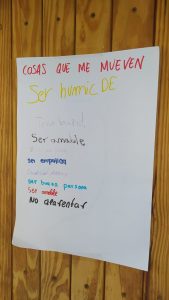 COSAS QUE ME MUEVEN
Ser humilDE
Ser amable
ser empatica
ser buena persona
Ser amable
NO aparentar